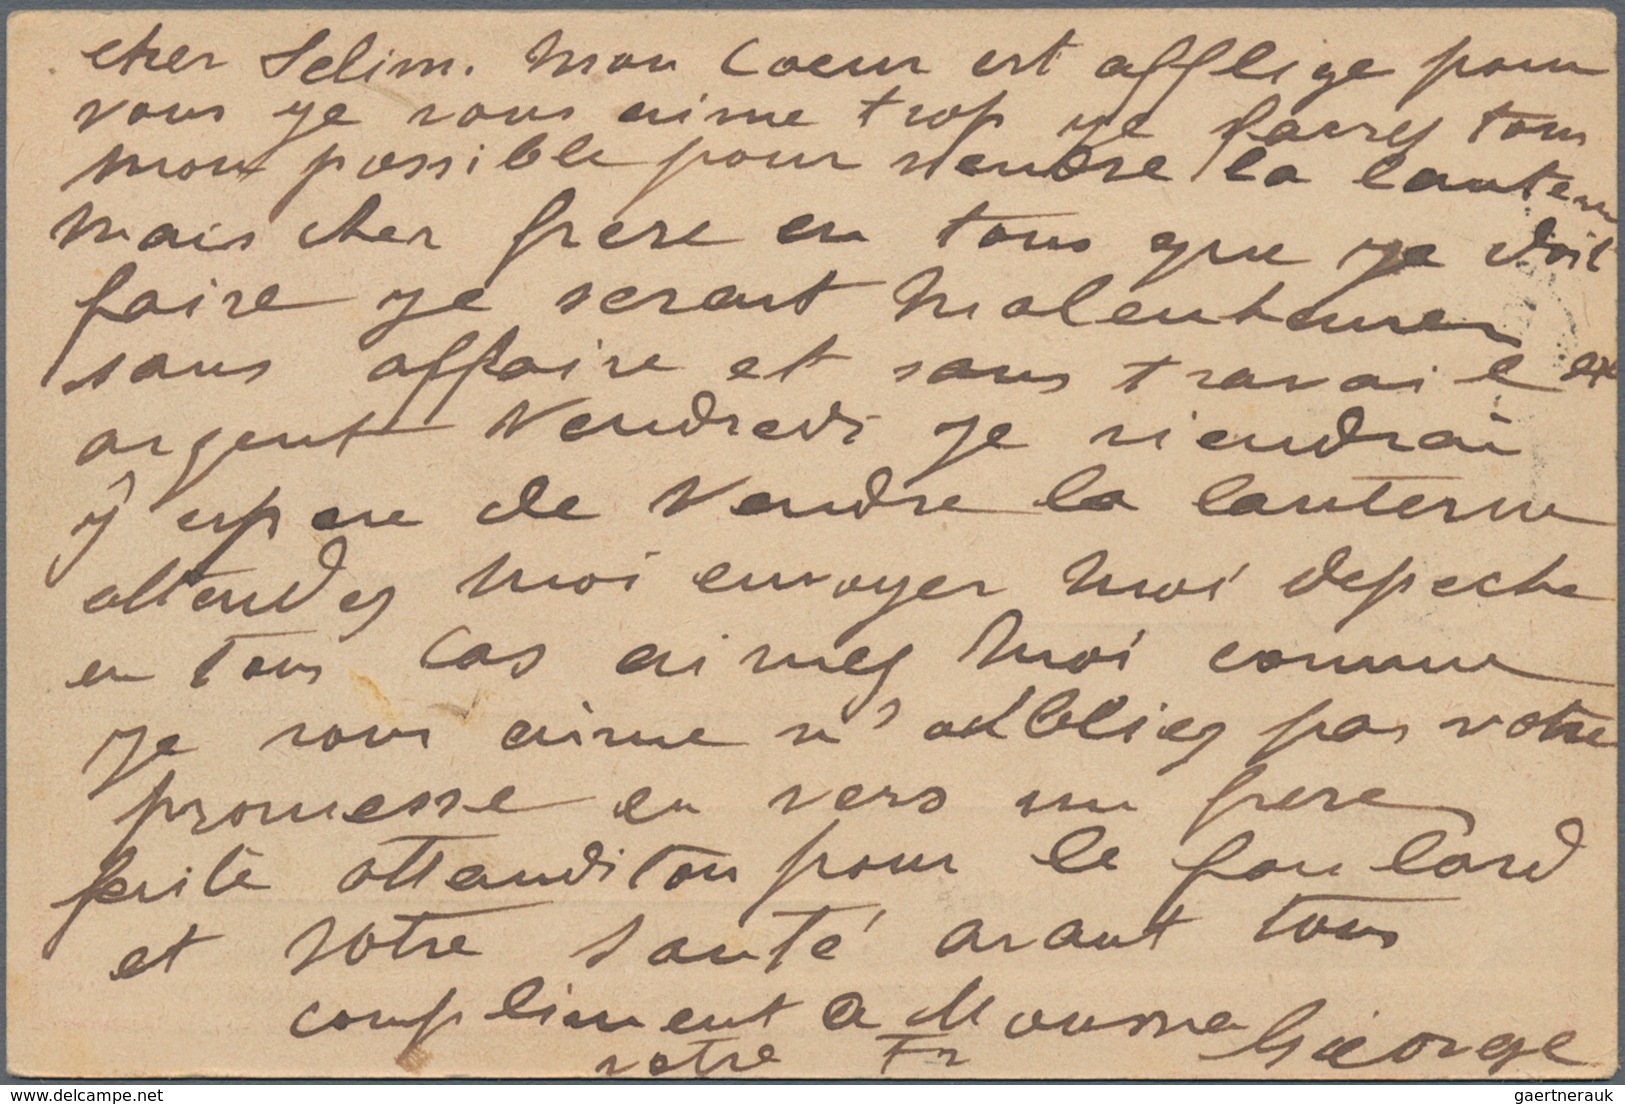 cher Selim. Mon coeur est afflige pour
vous je vous aime trop je faires tous
mon possible pour vendre la lantern
mais cher frere en tous que je doit
faire je serant malenheureu
sans affaire et sans travail
argent Vendredi je viendrai
j'espere de vendre la lanterne
attendez moi envoyer moi depeche
en tous cas aimez moi comme
je vous aime n'oubliez pas votre
promesse en vers un frere
attandi tou pour le foulard
et votre santé avant tous
compliment a Moussa
votre Fr George
www.delcampe.net
gaertnerauk